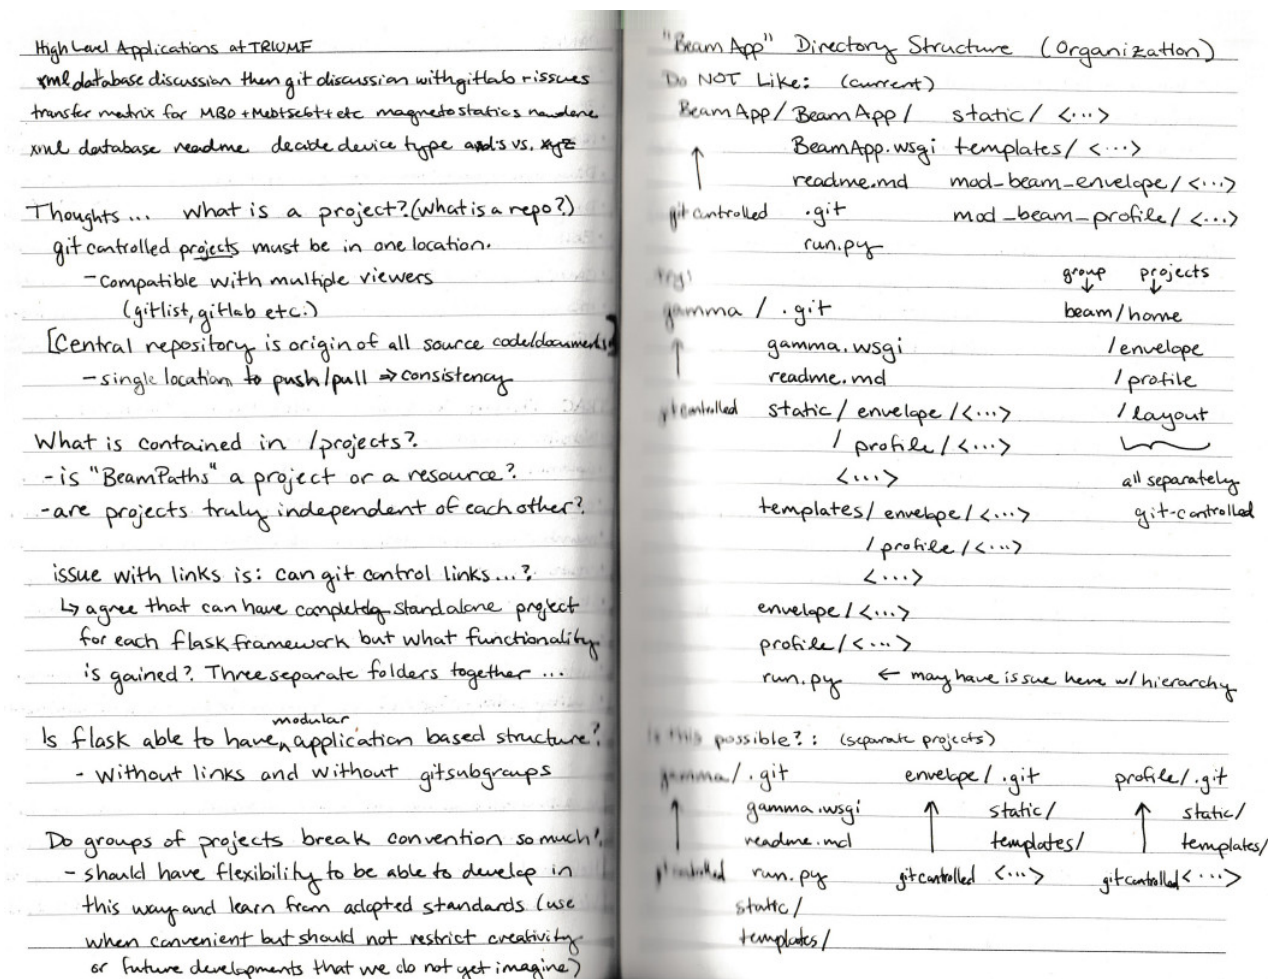 High Level Applications at TRIUMF
xml database discussion then git discussion with gitlab + issues
transfer matrix for MB0 + etc magnetostatics
xml database readme decide device type and s vs. xyz
Thoughts... what is a project? (what is a repo?)
git controlled projects must be in one location.
- compatible with multiple viewers
(gitlist, gitlab etc.)
[Central repository is origin of all source code/documents]
- single location to push/pull ⇒ consistency
What is contained in /projects?
- is "BeamPaths" a project or a resource?
- are projects truly independent of each other?
issue with links is: can git control links...?
↳ agree that can have completely standalone project
for each flask framework but what functionality
is gained? Three separate folders together ...
modular
Is flask able to have ^ application based structure?
- without links and without gitsubgroups
Do groups of projects break convention so much?
- should have flexibility to be able to develop in
this way and learn from adopted standards (use
when convenient but should not restrict creativity
or future developments that we do not yet imagine)
"Beam App" Directory Structure (Organization)
Do NOT Like: (current)
BeamApp/ BeamApp/ static/ <...>
BeamApp.wsgi templates/ <...>
↑ readme.md mod_beam_envelope/ <...>
git controlled .git mod_beam_profile/ <...>
run.py
group projects
↓ ↓
gamma / .git beam/home
gamma.wsgi /envelope
↑ readme.md /profile
git controlled static/ envelope/<...> /layout
/ profile/<...>
<...> all separately
templates/ envelope/<...> git-controlled
/ profile/<...>
<...>
envelope/<...>
profile/<...>
run.py ← may have issue here w/ hierarchy
Is this possible?: (separate projects)
gamma/.git envelope/.git profile/.git
gamma.wsgi ↑ static/ ↑ static/
↑ readme.md templates/ templates/
git controlled run.py git controlled <...> git controlled <...>
static/
templates/